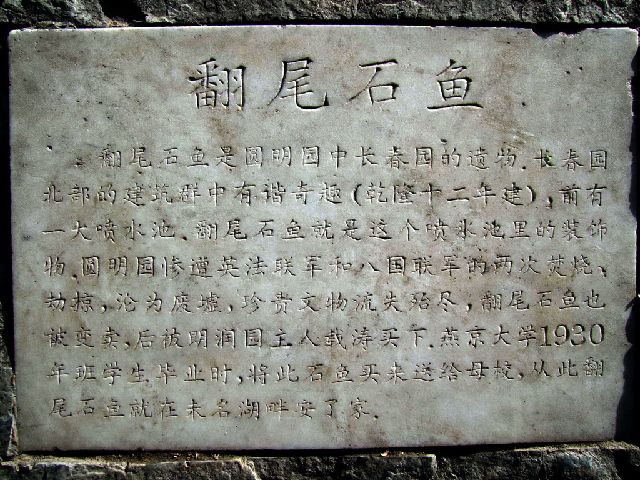 翻尾石鱼
翻尾石鱼是圆明园中长春园的遗物.长春园
北部的建筑群中有谐奇趣(乾隆十二年建),前有
一大喷水池.翻尾石鱼就是这个喷水池里的装饰
物.圆明园惨遭英法联军和八国联军的两次焚烧、
劫掠,沦为废墟,珍贵文物流失殆尽,翻尾石鱼也
被变卖,后被明润园主人载涛买下.燕京大学1930
年班学生毕业时,将此石鱼买来送给母校,从此翻
尾石鱼就在未名湖畔安了家.